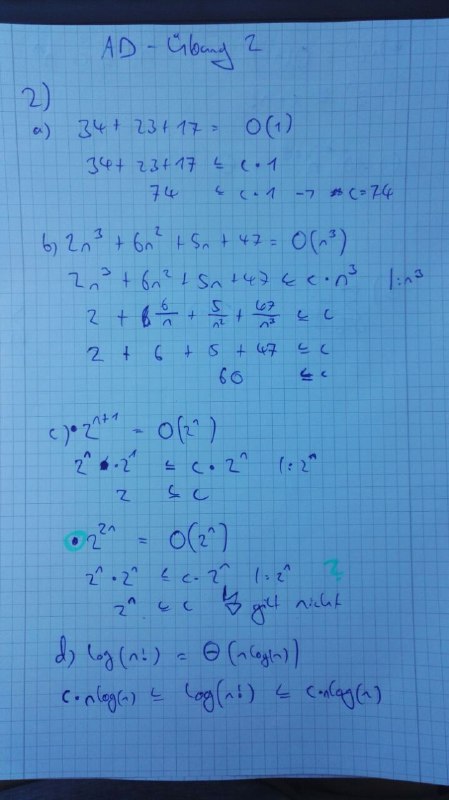 AD - Übung 2
2)
a) 34 + 23 + 17 = O(1)
34 + 23 + 17 ≤ c · 1
74 ≤ c · 1 → c = 74
b) 2n³ + 6n² + 5n + 47 = O(n³)
2n³ + 6n² + 5n + 47 ≤ c · n³ |: n³
2 + 6/n + 5/n² + 47/n³ ≤ c
2 + 6 + 5 + 47 ≤ c
60 ≤ c
c) • 2ⁿ⁺¹ = O(2ⁿ)
2ⁿ · 2¹ ≤ c · 2ⁿ |: 2ⁿ
2 ≤ c
• 2²ⁿ = O(2ⁿ)
2ⁿ · 2ⁿ ≤ c · 2ⁿ |: 2ⁿ ?
2ⁿ ≤ c ↯ gilt nicht
d) log(n!) = Θ(n log(n))
c · n log(n) ≤ log(n!) ≤ c · n log(n)